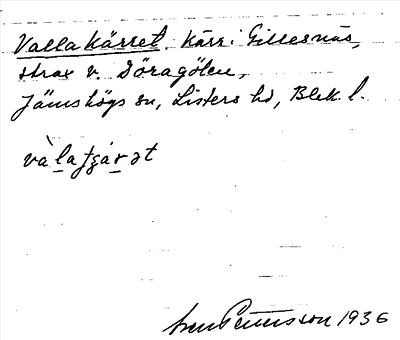 Vallakärret. Kärr i Gillesnäs,
strax v. Döragölen,
Jämshögs sn, Listers hd, Blek. l.
vàlatʃárət
Sven Pettersson 1936